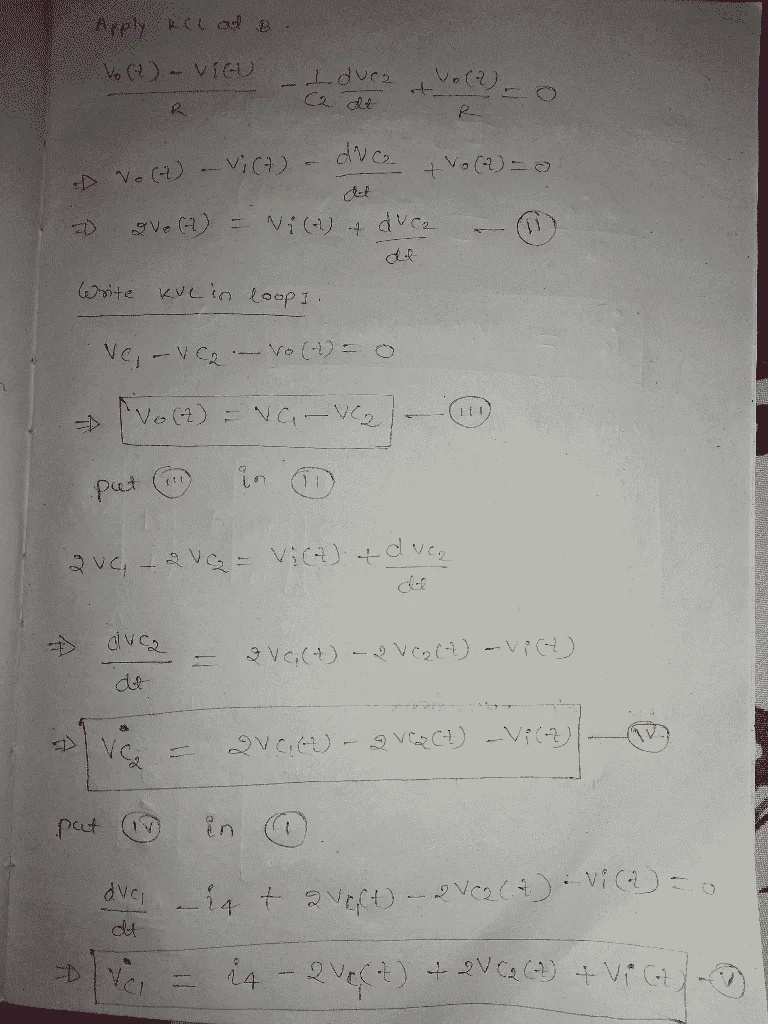 Apply KCL at B.
Vo(t) - Vi(t) / R - 1/C2 dVC2/dt + Vo(t)/R = 0
⇒ Vo(t) - Vi(t) - dVC2/dt + Vo(t) = 0
⇒ 2Vo(t) = Vi(t) + dVC2/dt — (ii)
Write KVL in loop 1.
VC1 - VC2 - Vo(t) = 0
⇒ Vo(t) = VC1 - VC2 — (iii)
put (iii) in (ii)
2VC1 - 2VC2 = Vi(t) + dVC2/dt
⇒ dVC2/dt = 2VC1(t) - 2VC2(t) - Vi(t)
⇒ V̊C2 = 2VC1(t) - 2VC2(t) - Vi(t) — (iv)
put (iv) in (i)
dVC1/dt - i4 + 2VC1(t) - 2VC2(t) - Vi(t) = 0
⇒ V̊C1 = i4 - 2VC1(t) + 2VC2(t) + Vi(t) — (v)